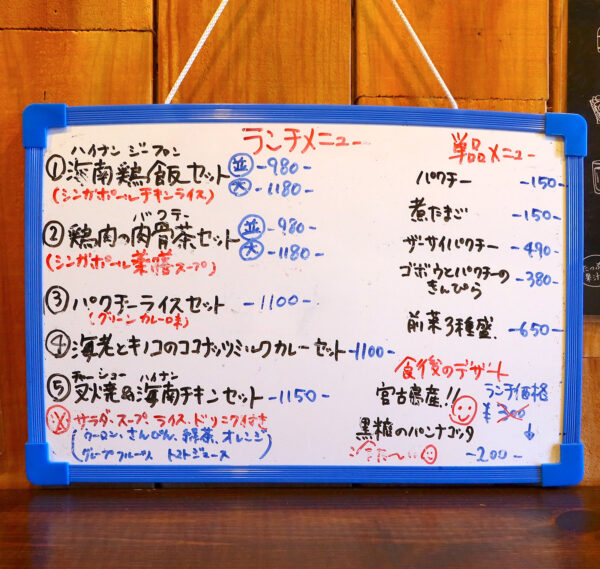 ランチメニュー
ハイナン ジーファン
① 海南鶏飯セット 並 -980-
(シンガポールチキンライス) 大 -1180-
バクテー
② 鶏肉の肉骨茶セット 並 -980-
(シンガポール薬膳スープ) 大 -1180-
③ パクチーライスセット -1100-
(グリーンカレー味)
④ 海老とキノコのココナッツミルクカレーセット -1100-
チャーシュー ハイナン
⑤ 叉焼&海南チキンセット -1150-
※ サラダ、スープ、ライス、ドリンク付き
(ウーロン、さんぴん、緑茶、オレンジ
グレープフルーツ トマトジュース)
単品メニュー
パクチー -150-
煮たまご -150-
ザーサイパクチー -490-
ゴボウとパクチーの
きんぴら -380-
前菜3種盛 -650-
食後のデザート
宮古島産!! ランチ価格
¥300
黒糖のパンナコッタ ↓
-200-